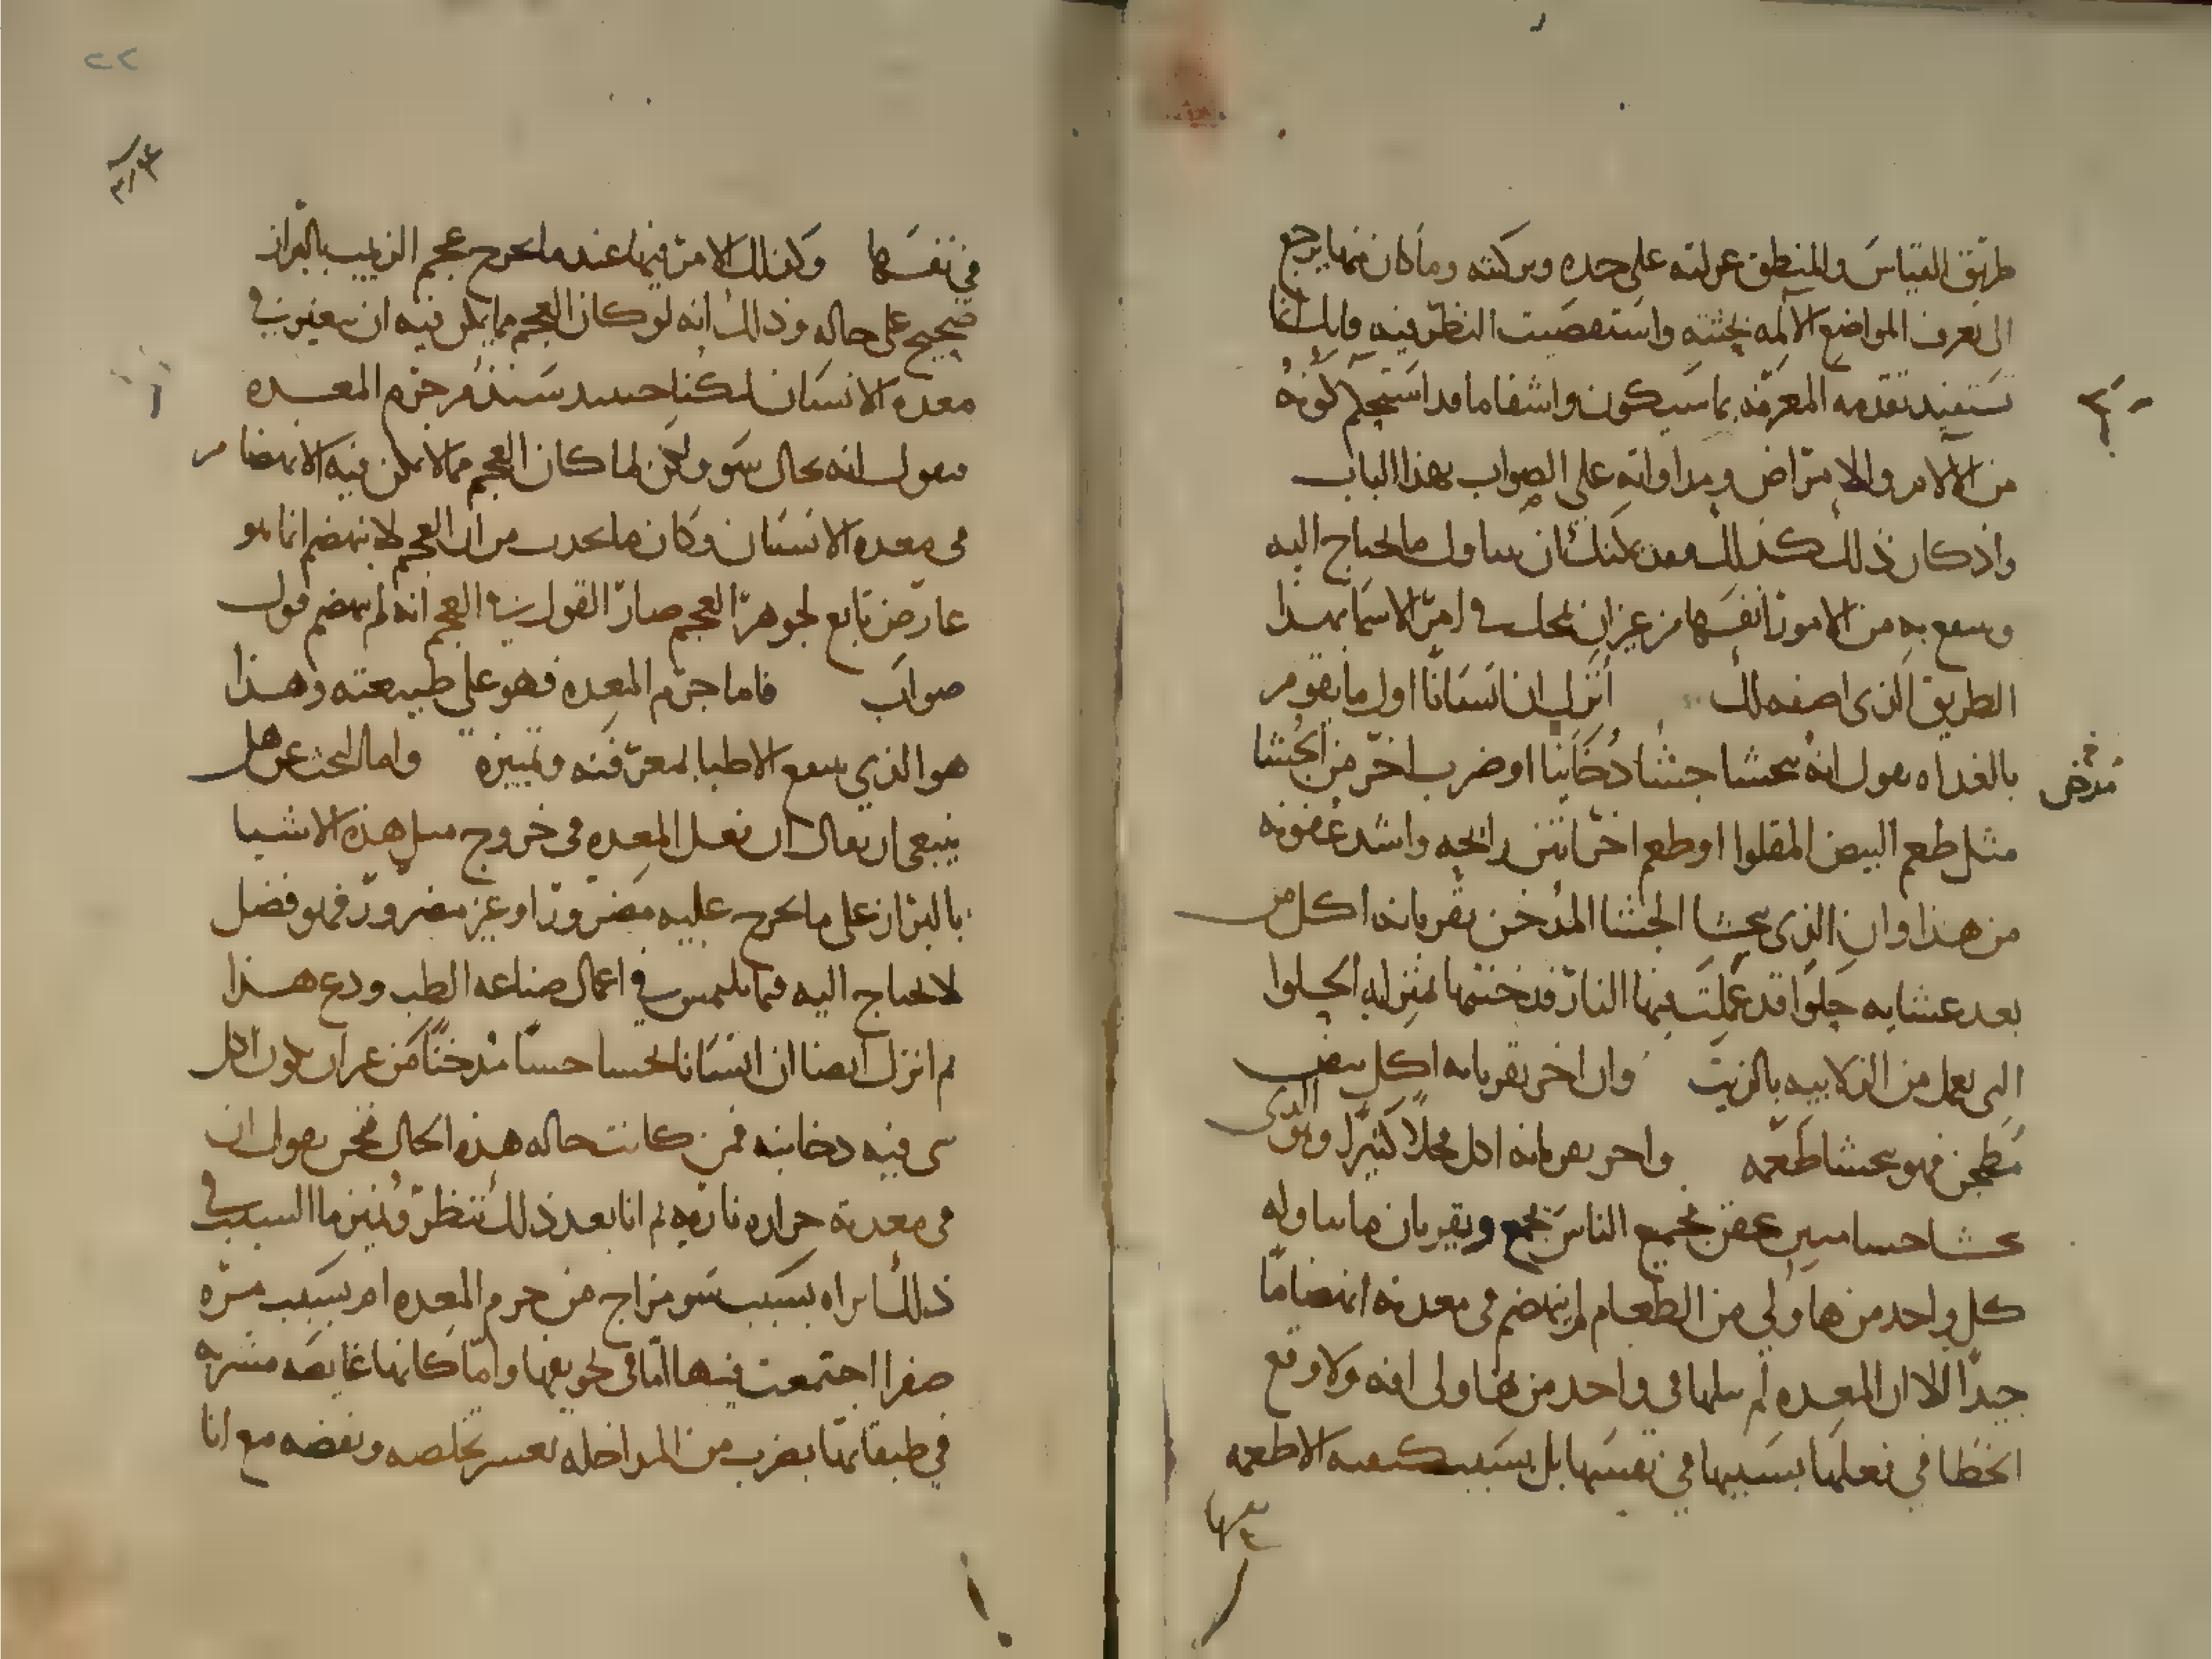 طريق القياس والمنطق عزلته على حده وتركته وما كان منها يرجع
الى تعرف المواضع الالمه بحثته واستقصيت النظر فيه فانك انما
تستفيد تقدمه المعرفه بما سيكون واشفا ما قد استحكم كونه
من الالام والامراض ومداواته على الصواب بهذا الباب
واذ كان ذلك كذلك فقد يمكنك ان تتناول ما تحتاج اليه
وتنتفع به من الامور انفسها من غير ان في امر الاسما بهذا
الطريق الذي اصفه لك انزل ان انسانا اول ما يقوم
بالغداه يقول انه يتجشا جشا دخانيا او ضرب اخر من الجشا
مدخن
مثل طعم البيض المقلوا او طعم اخر انتن رائحه واشد عفونه
من هذا وان الذي يتجشا الجشا المدخن يقر بانه اكل من
بعد عشايه حلوا قد عملت فيها النار فدخنتها بمنزله الحلوا
التي تعمل من الزلابيه بالزيت وان اخر يقر بانه اكل بيض
مطجن فهو يتجشا طعمه واخر يقر بانه اكل فجلا كثيرا وهو الذي
يتجشا جشا منتن عفن فجميع الناس تجمع وتقر بان ما تناوله
كل واحد من هاولي من الطعام لم ينهضم في معدته انهضاما
جيدا الا ان المعده لم تنلها في واحد من هاولي افه ولا وقع
الخطا في فعلها بسببها في نفسها بل بسبب كيفيه الاطعمه
في نفسها وكذلك الامر فيها عند ما تخرج عجم الزبيب بالبراز
صحيح على حاله وذلك انه لو كان العجم مما يمكن فيه ان يتغير في
معده الانسان لكنا حينيذ سنذم جرم المعده
فنقول انه بحال سو ولكن لما كان العجم مما لا يمكن فيه الانهضام
في معده الانسان وكان ما يحدث من ان العجم لا ينهضم انما هو
عارض تابع لجوهر العجم صار القول في العجم انه لم ينهضم قول
صواب فاما جرم المعده فهو على طبيعته وهذا
هو الذي ينتفع الاطبا بمعرفته وتمييزه واما البحث عن هل
ينبغي ان يقال ان فعل المعده في خروج مثل هذه الاشيا
بالبراز على ما تخرج عليه مضرور او غير مضرور فهو فضل
لا يحتاج اليه فيما يلتمس في اعمال صناعه الطب ودع هذا
ثم انزل ايضا ان انسانا يتجشا جشا مدخنا من غير ان يكون اكل
شي فيه دخانيه فمن كانت حاله هذه الحال فنحن نقول ان
في معدته حراره ناريه ثم انا بعد ذلك ننظر ونميز ما السبب في
ذلك اتراه بسبب سو مزاج من جرم المعده ام بسبب مره
صفرا اجتمعت فيها اما في تجويفها واما كانها غايصه متشربه
في طبقاتها بضرب من المداخله يعسر تخلصه ونفضه مع انا